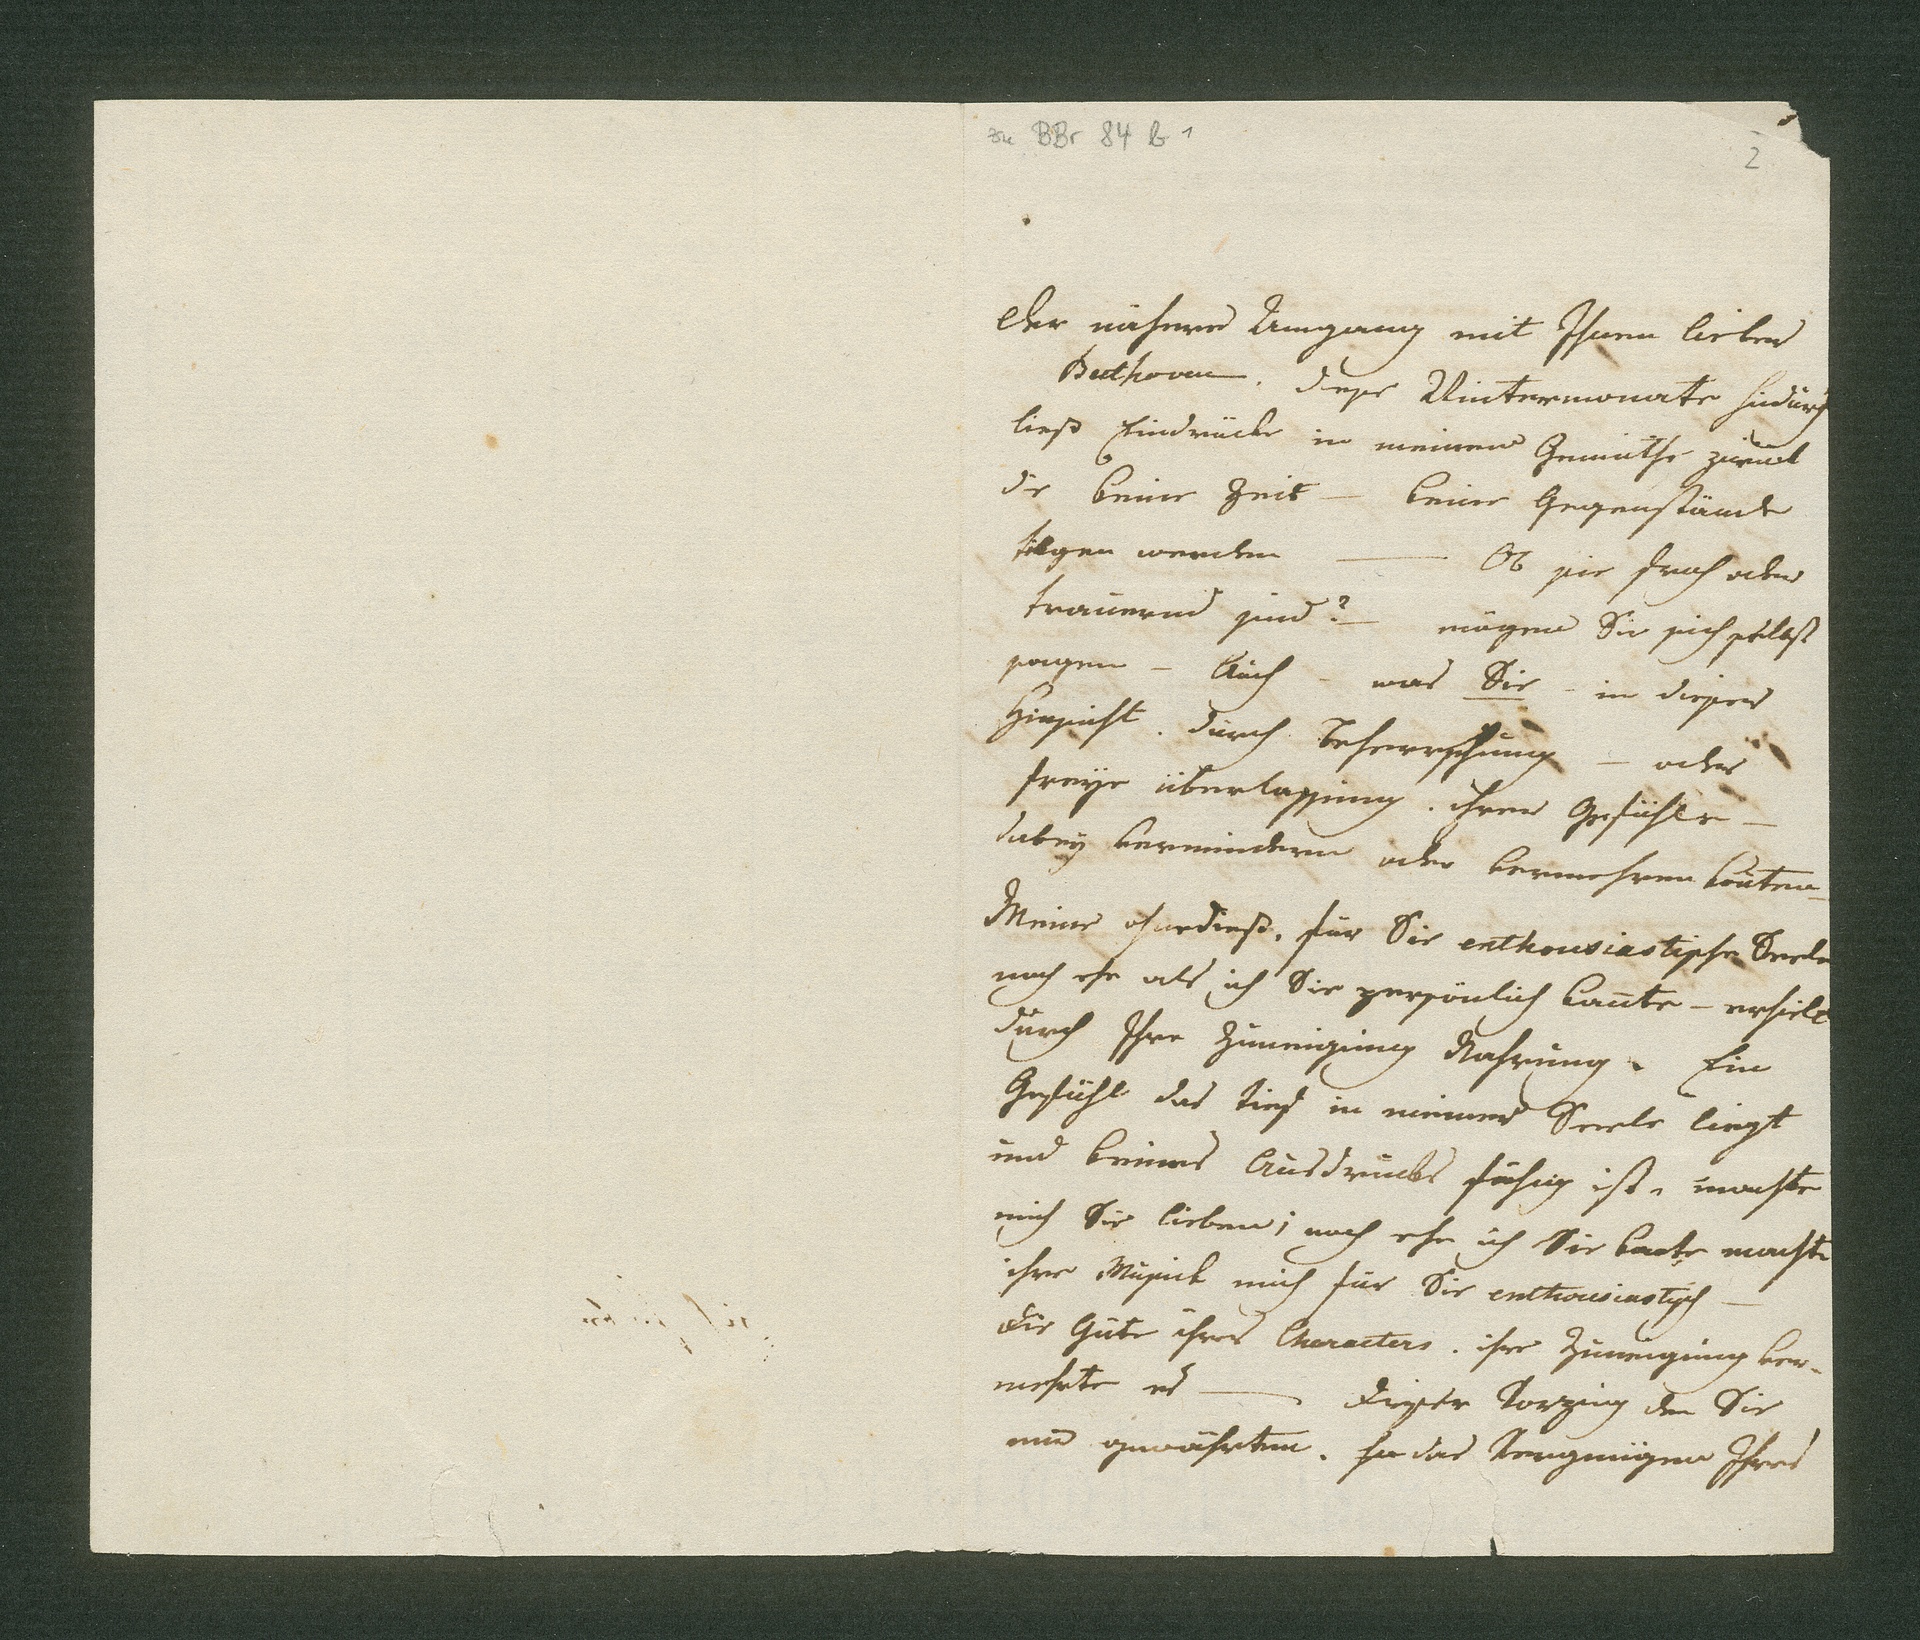 zu BBr 84 b 1
2
Der nähere Umgang mit Ihnen lieber
Beethoven. diese Wintermonate hindurch
ließ Eindrücke in meinem Gemüthe zurück
die keine Zeit – keine Gegenstände
tilgen werden —— Ob sie froh oder
traurend sind? – mögen Sie sich selbst
sagen – Auch – was Sie – in dieser
Hinsicht. durch Beherrschung – oder
freye überlassung. ihrer Gefühle –
dabey vermindern oder vermehren konten –
Meine ohnedieß. für Sie enthousiastische Seele
noch ehe als ich Sie persönlich kannte – erhielt
durch Ihre Zuneigung Nahrung. Ein
Gefühl das tief in meiner Seele liegt
und keines Ausdrucks fähig ist. machte
mich Sie lieben; noch ehe ich Sie kante machte
ihre Musick mich für Sie enthousiastisch –
Die Güte ihres Characters. ihre Zuneigung ver-
mehrte es —— Dieser Vorzug den Sie
mir gewährten. das Vergnügen Ihres